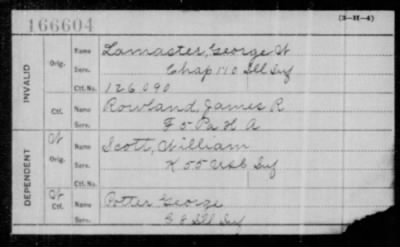 166604
(3-H-4)
INVALID
Orig.
Name Lamaster, George W
Serv. Chap 110 Ill Inf
Ctf. No. 126090
Ctf.
Name Rowland, James R
Serv. F 5 Pa H A
DEPENDENT
W
Orig.
Name Scott, William
Serv. K 55 USC Inf
Ctf. No.
Ctf.
Name Potter George
Serv. G 8 Ill Inf